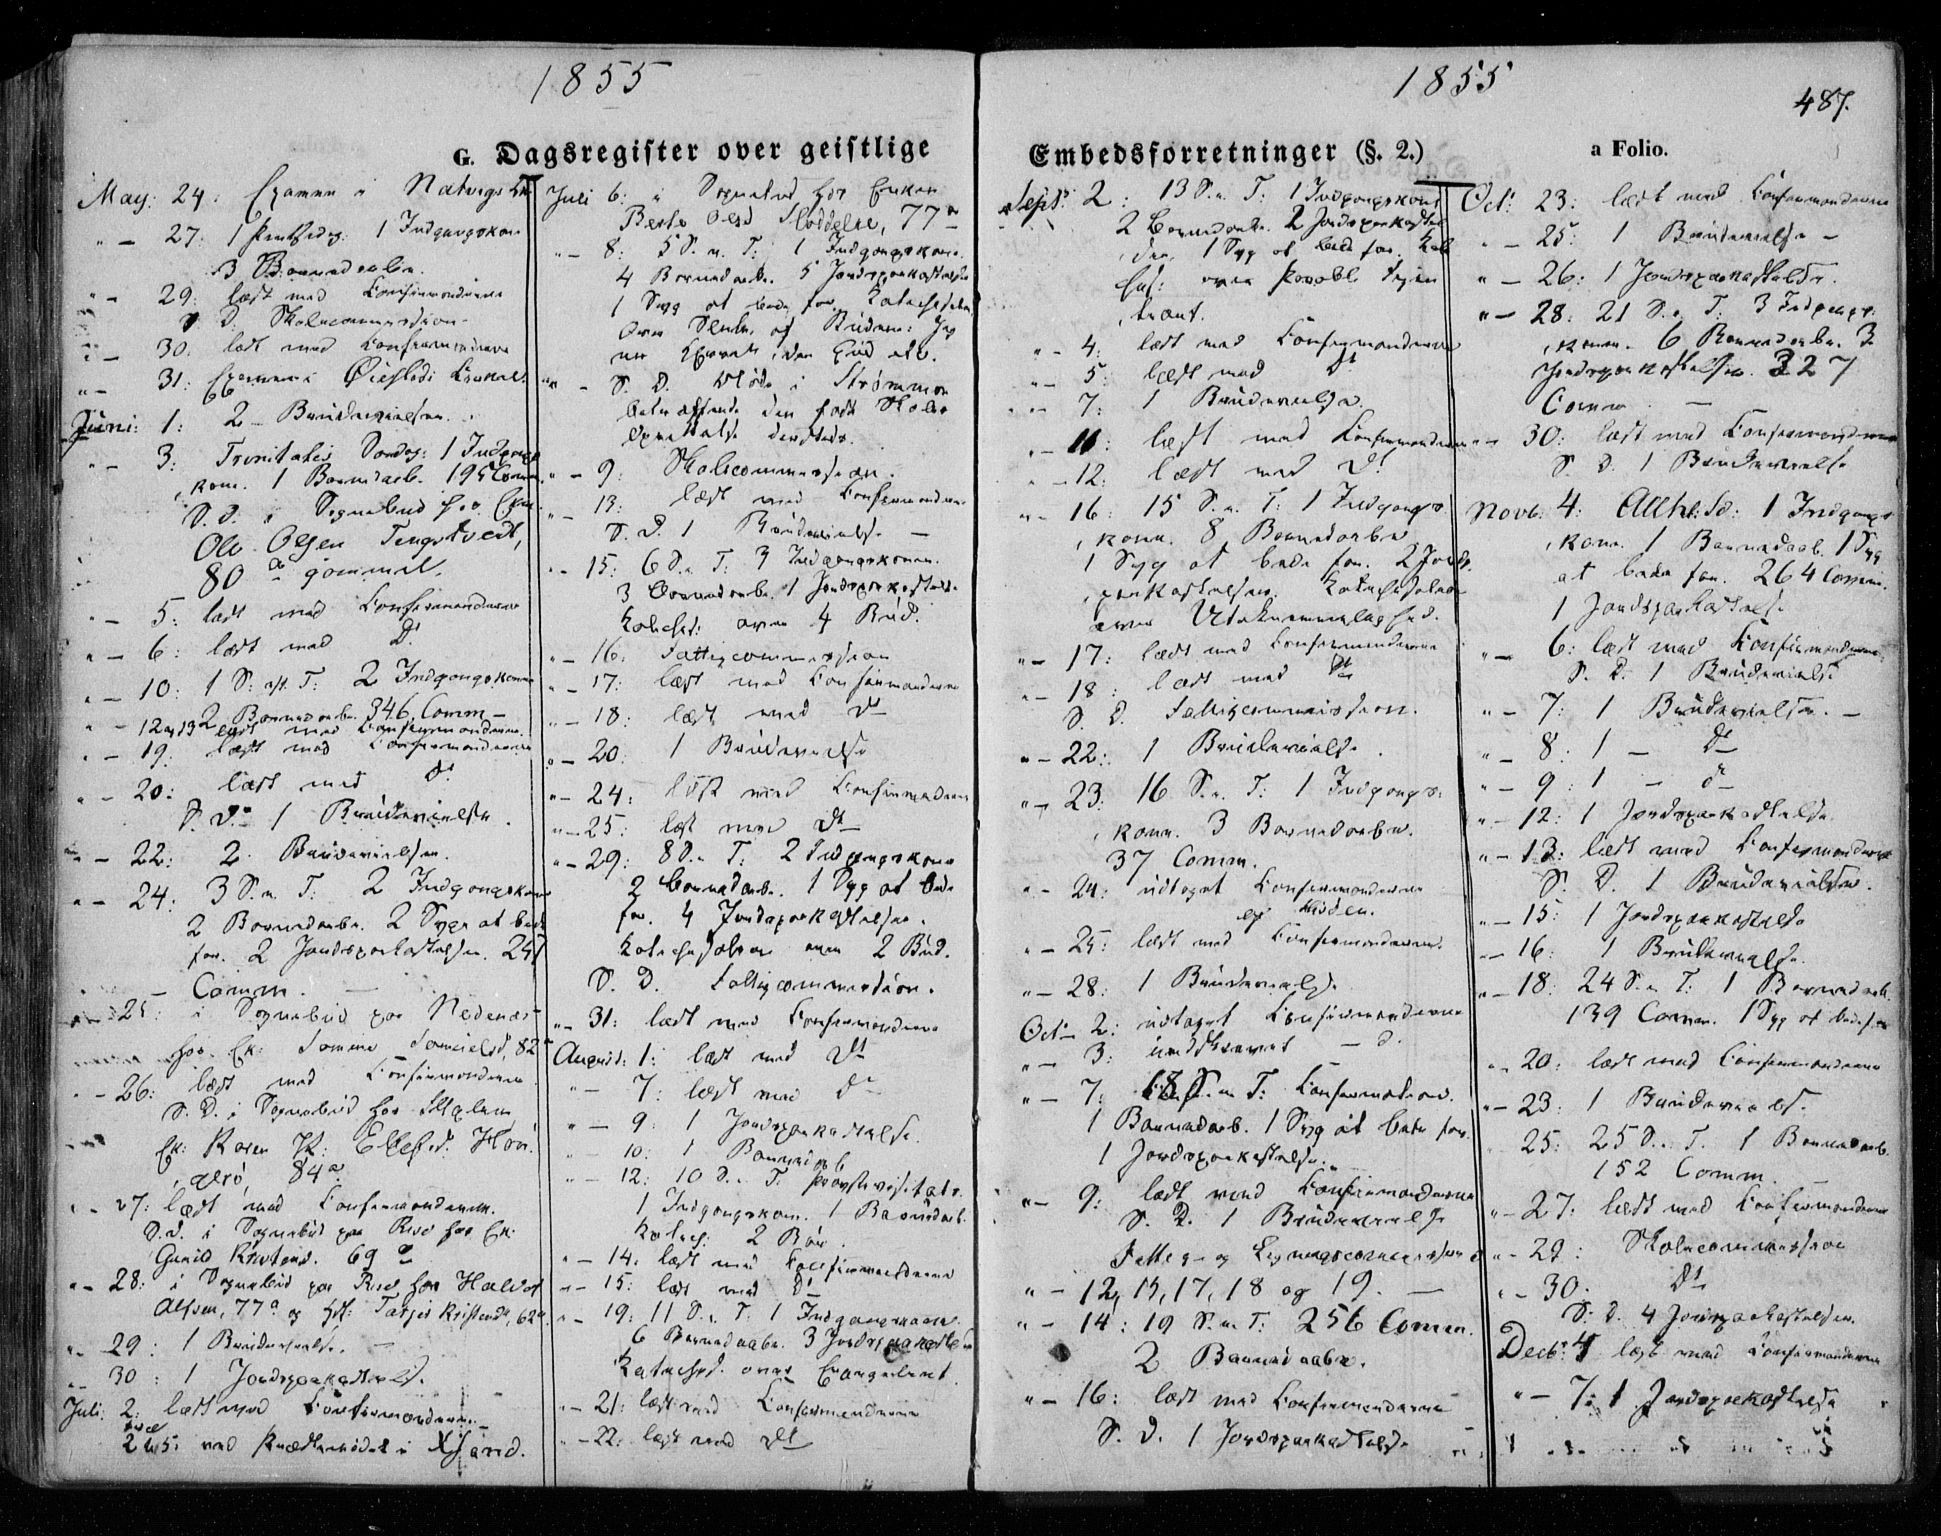 1855
G. Dagsregister over geistlige
May: 24: Examen i Natvigs
" — 27: 1 1 Indgangskone
3 Barnedaabe.
" — 29: læst med Confirmanderne
S. D. Skolecommission.
" — 30: læst med Confirmanderne
" — 31: Examen i Øiesteds
Juni: 1: 2 Brudevielser.
" — 3: Trinitatis Søndag: 1 Indgangs
kone. 1 Barnedaab. 195 Comm.
S. D. i Sognebud hos
Ole Olsen Tengstvedt,
80 a gammel.
" — 5: læst med Confirmanderne
" — 6: læst med Dº
" — 10: 1 S. eft. T: 2 Indgangskoner
2 Barnedaabe. 346 Comm —
" — 12 og 13 læst med Confirmanderne.
" — 19: læst med Confirmanderne
" — 20: læst med Dº
S. D. 1 Brudevielse.
" — 22: 2 Brudevielser.
" — 24: 3 S. e. T: 2 Indgangskoner
2 Barnedaabe. 2 Syge at bede
for. 2 Jordspaakastelser. 247
Comm. —
" — 25: i Sognebud paa Nedenæs
hos Ek: 82
" — 26: læst med Confirmanderne
S. D. i Sognebud hos
Ek: Karen 84 a
" — 27: læst med Confirmanderne.
S. D. i Sognebud paa Rise hos Ek:
Gunild 69 a
" — 28: i Sognebud paa Rise hos Halvor
Alfsen, 77 a og Tarjer 62 a
" — 29: 1 Brudevielse. —
" — 30: 1 Jordspaakastelse.
Juli: 2: læst med Confirmanderne
Juli 6: i Sognebud hos Enken
77 a
" — 8: 5 S. e. T: 1 Indgangskone.
4 Barnedaabe. 5 Jordspaakastelser
1 Syg at bede for. Catechisation
over
S. D. Møde i Strømmen
betræffende den faste Skoles
Oprettelse dersteds.
" — 9: Skolecommission.
" — 13: læst med Confirmanderne
S. D. 1 Brudevielse —
" — 15: 6 S. e. T: 3 Indgangskoner.
3 Barnedaabe. 1 Jordspaakastelse
Katechis: over 4 Bud.
" — 16: Fattigcommission
" — 17: læst med Confirmanderne
" — 18: læst med Dº
" — 20: 1 Brudevielse
" — 24: læst med Confirmanderne
" — 25: læst med Dº
" — 29: 8 S. e. T: 2 Indgangskoner
2 Barnedaabe. 1 Syg at bede
for. 4 Jordspaakastelser.
Katechisation over 2 Bud.
S. D. Fattigcommission.
" — 31: læst med Confirmanderne
August: 1: læst med Dº
" — 7: læst med Dº
" — 9: 1 Jordspaakastelse.
" — 10: 1 Barnedaab
" — 12: 10 S. e. T. Provstevisitats.
1 Indgangskone. 1 Barnedaab.
Katech: 2 Bøn.
" — 14: læst med Confirmanderne
" — 15: læst med Dº
" — 19: 11 S. e. T. 1 Indgangskone
6 Barnedaabe. 3 Jordspaakastelser
Katechis. over Evangeliet.
" — 21: læst med Confirmanderne
" — 22: læst med Dº
1855
487.
Embedsforretninger (§. 2.) a Folio.
Sept: 2: 13 S. e. T: 1 Indgangskone
2 Barnedaabe. 2 Jordspaakastel
ser. 1 Syg at bede for. Kate
" — 4: læst med Confirmanderne
" — 5: læst med Dº
" — 7: 1 Brudevielse.
" — 11: læst med Confirmanderne
" — 12: læst med Dº
" — 16: 15 S. e. T: 1 Indgangs
kone. 8 Barnedaabe
1 Syg at bede for. 2 Jords
paakastelser. Katechisation
over Utaknemmelighed.
" — 17: læst med Confirmanderne
" — 18: læst med Dº
S. D. Fattigcommission.
" — 22: 1 Brudevielse.
" — 23: 16 S. e. T: 1 Indgangs
kone. 3 Barnedaabe.
37 Comm.
" — 24: udtaget Confirmanderne
" — 25: læst med Confirmanderne.
" — 28: 1 Brudevielse.
Oct: 2: udtaget Confirmanderne
" — 3: — d.
" — 7: 18 S. e. T: Confirmation.
1 Barnedaab. 1 Syg at bede for.
1 Jordspaakastelse.
" — 9: læst med Confirmanderne
S. D. 1 Brudevielse
Fattig- og Ligningscommission d.
" — 12, 15, 17, 18 og 19. —
" — 14: 19 S. e. T: 256 Comm.
2 Barnedaabe.
" — 16: læst med Confirmanderne
S. D. 1 Jordspaakastelse
Oct: 23: læst med Confirmanderne
" — 25: 1 Brudevielse —
" — 26: 1 Jordspaakastelse.
" — 28: 21 S. e. T: 3 Indgangs
koner. 6 Barnedaabe. 3
Jordspaakastelser. 327
Comm —
" — 30: læst med Confirmanderne
S. D. 1 Brudevielse
Novb: 4: Allhl: Sø: 1 Indgangs
kone. 1 Barnedaab. 1 Syg
at bede for. 264 Comm.
1 Jordspaakastelse
" — 6: læst med Confirmanderne
S. D. 1 Brudevielse
" — 7: 1 Brudevielse. —
" — 8: 1 — Dº
" — 9: 1 — dº
" — 12: 1 Jordspaakastelse.
" — 13: læst med Confirmanderne
S. D. 1 Brudevielse.
" — 15: 1 Jordspaakastelse
" — 16: 1 Brudevielse.
" — 18: 24 S. e. T: 1 Barnedaab.
139 Comm. 1 Syg at bede for
" — 20: læst med Confirmanderne
" — 23: 1 Brudevielse.
" — 25: 25 S. e. T. 1 Barnedaab.
152 Comm. —
" — 27: læst med Confirmanderne
" — 29: Skolecommission
" — 30: Dº
S. D. 4 Jordspaakastelser.
Decb: 4 læst med Confirmanderne
" — 7: 1 Jordspaakastelse